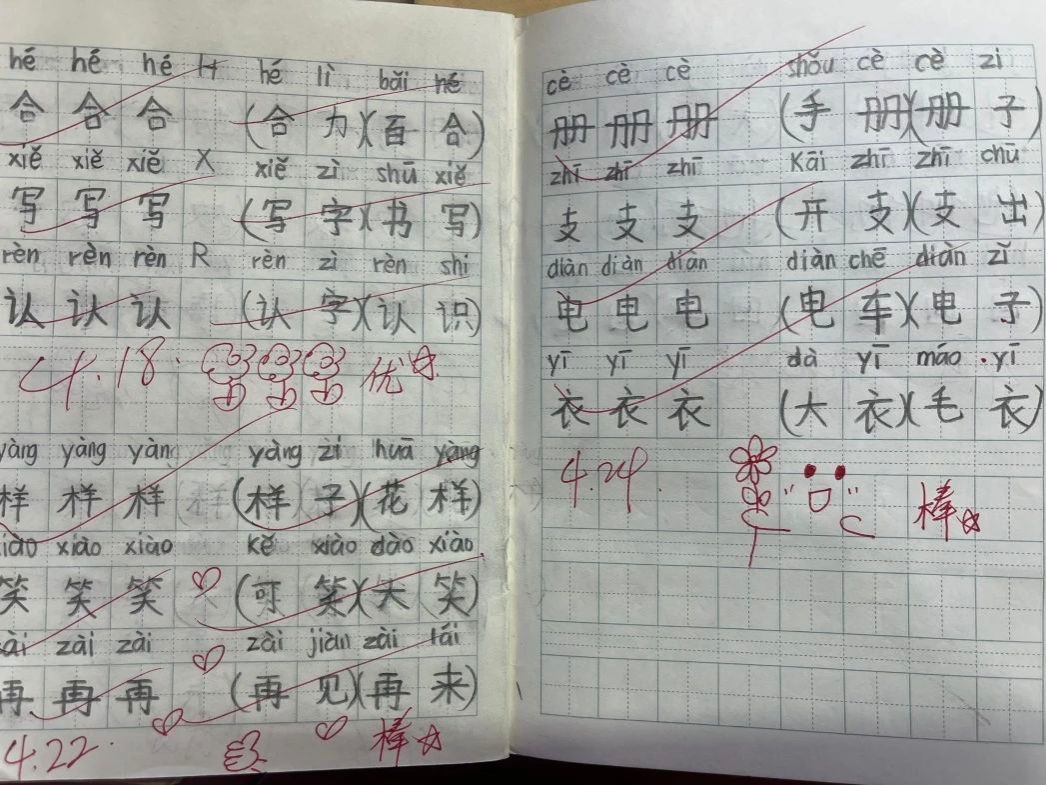 hé hé hé H hé lì bǎi hé
合 合 合 (合 力)(百 合)
xiě xiě xiě X xiě zì shū xiě
写 写 写 (写 字)(书 写)
rèn rèn rèn R rèn zì rèn shi
认 认 认 (认 字)(认 识)
4.18. 优
yàng yàng yàng yàng zi huā yàng
样 样 样 样 (样 子)(花 样)
xiào xiào xiào kě xiào dào xiào
笑 笑 笑 (可 笑)(大 笑)
zài zài zài zài jiàn zài lái
再 再 再 (再 见)(再 来)
4.22. 棒
cè cè cè shǒu cè cè zi
册 册 册 (手 册)(册 子)
zhī zhī zhī Kāi zhī zhī chū
支 支 支 (开 支)(支 出)
diàn diàn diàn diàn chē diàn zǐ
电 电 电 (电 车)(电 子)
yī yī yī dà yī máo yī
衣 衣 衣 (大 衣)(毛 衣)
4.24. 棒